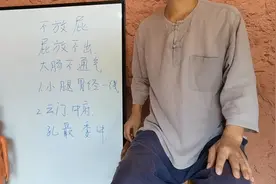 不放屁
屁放不出
大肠不通气
1.小腿胃经一线
2.云门 中府
孔最